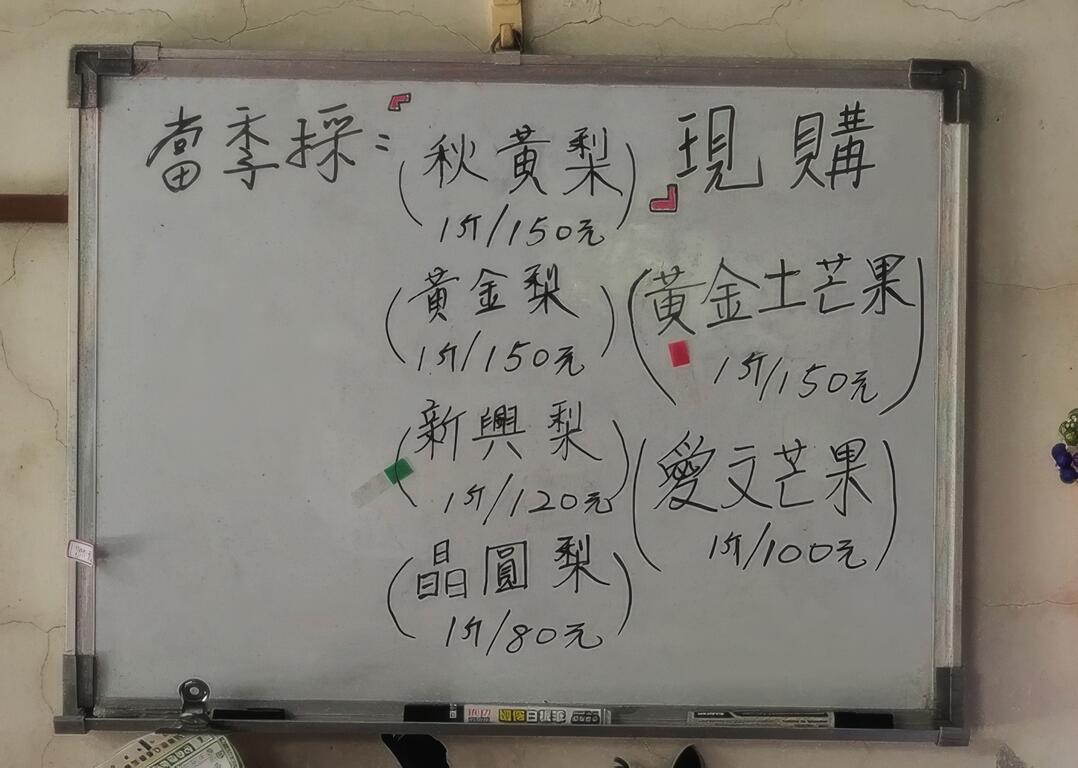 當季採: 現購
(秋黃梨)
1斤/150元
(黃金梨)
1斤/150元
(新興梨)
1斤/120元
(晶圓梨)
1斤/80元
(黃金土芒果)
1斤/150元
(愛文芒果)
1斤/100元